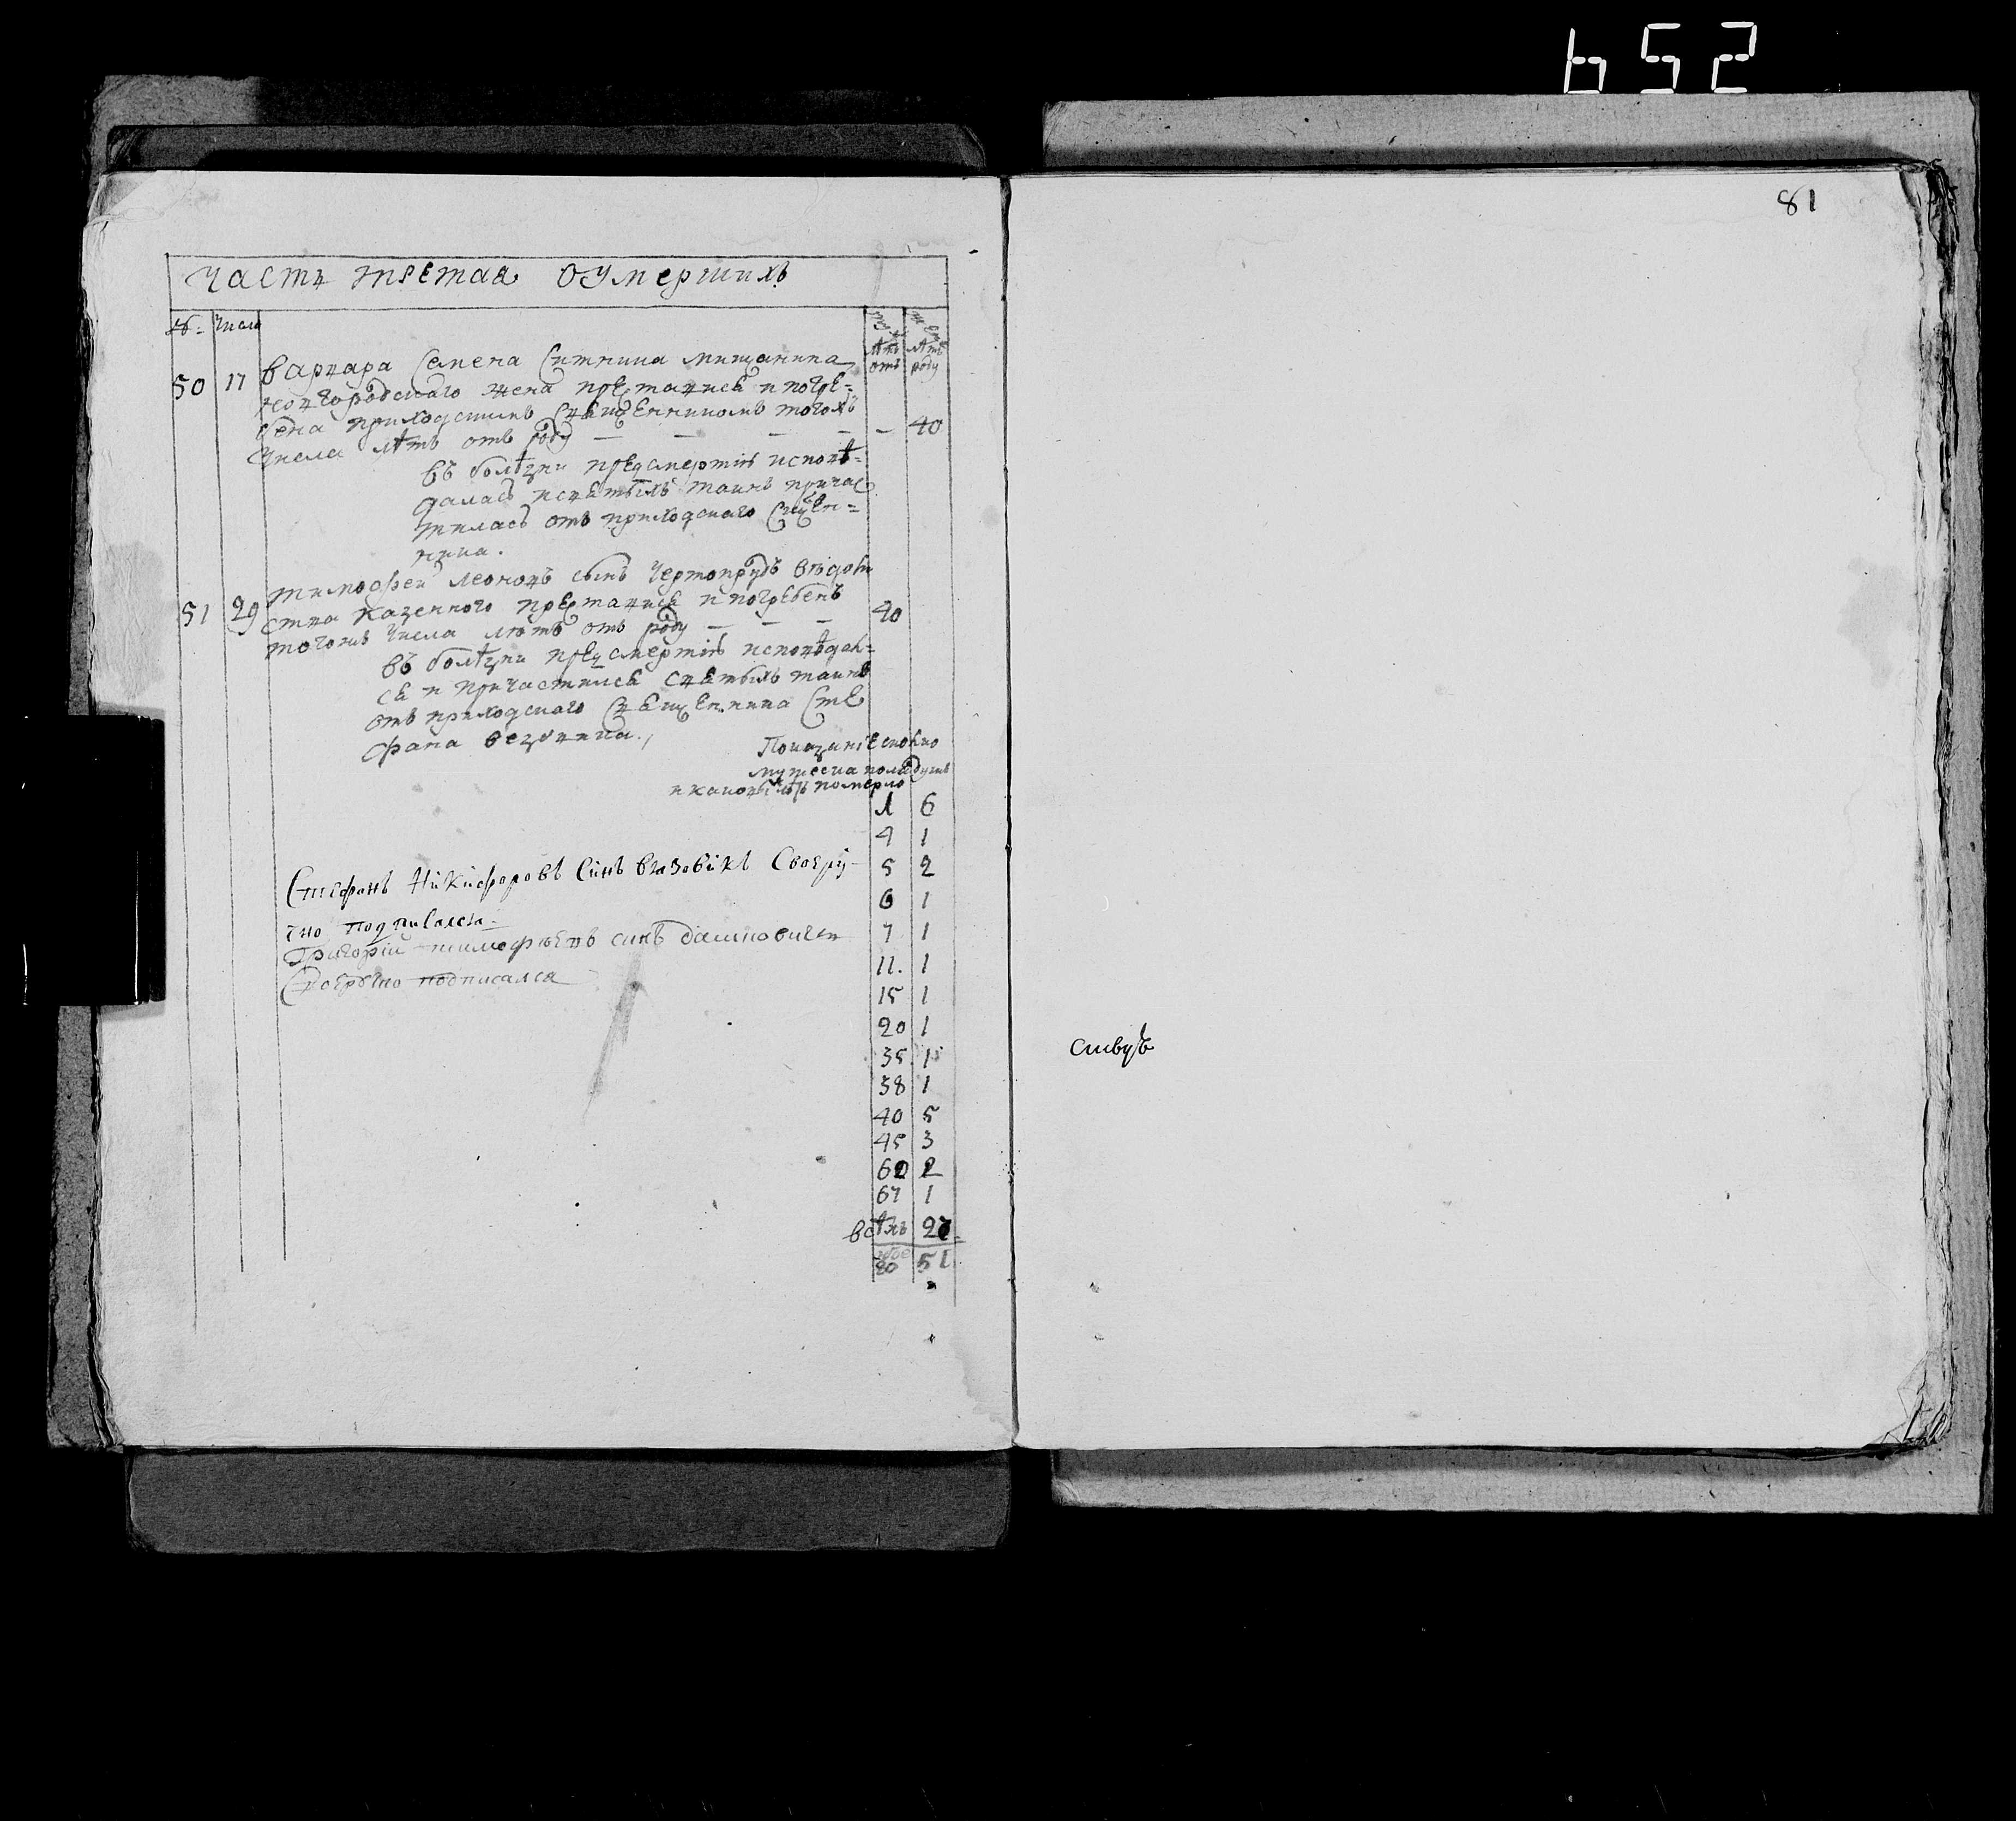 652
81
часть третая о умершихъ
№: Числ
муж лѣтъ отъ
жен лѣтъ роду
50 17 варвара Семена Ситника мищанина
новгородского жена преставися и погре=
бена приходскимъ священникомъ тогожъ
числа лѣтъ отъ роду — — — — 40
въ болѣзни предсмертнѣ исповѣ=
далась и святыхъ таинъ причас
тилась отъ приходского Свщен=
ника.
51 29 тимофей леоновъ сынъ Чертопрудъ вѣдом
ства казенного преставися и погребенъ
тогожъ числа лѣтъ отъ роду — — — 40
въ болѣзни предсмертнѣ исповѣдал=
ся и причастился святыхъ таинъ
отъ приходского Священника Сте
фана
мужеска полу душъ
померло
1 6
4 1
5 2
6 1
7 1
11. 1
15 1
20 1
35 1
38 1
40 5
45 3
60 2
67 1
всѣхъ 27
51
Стефанъ Никифоровъ Синъ Свору-
чно подписалса
Григорій тимофѣевъ синъ
Своеручно подписалса